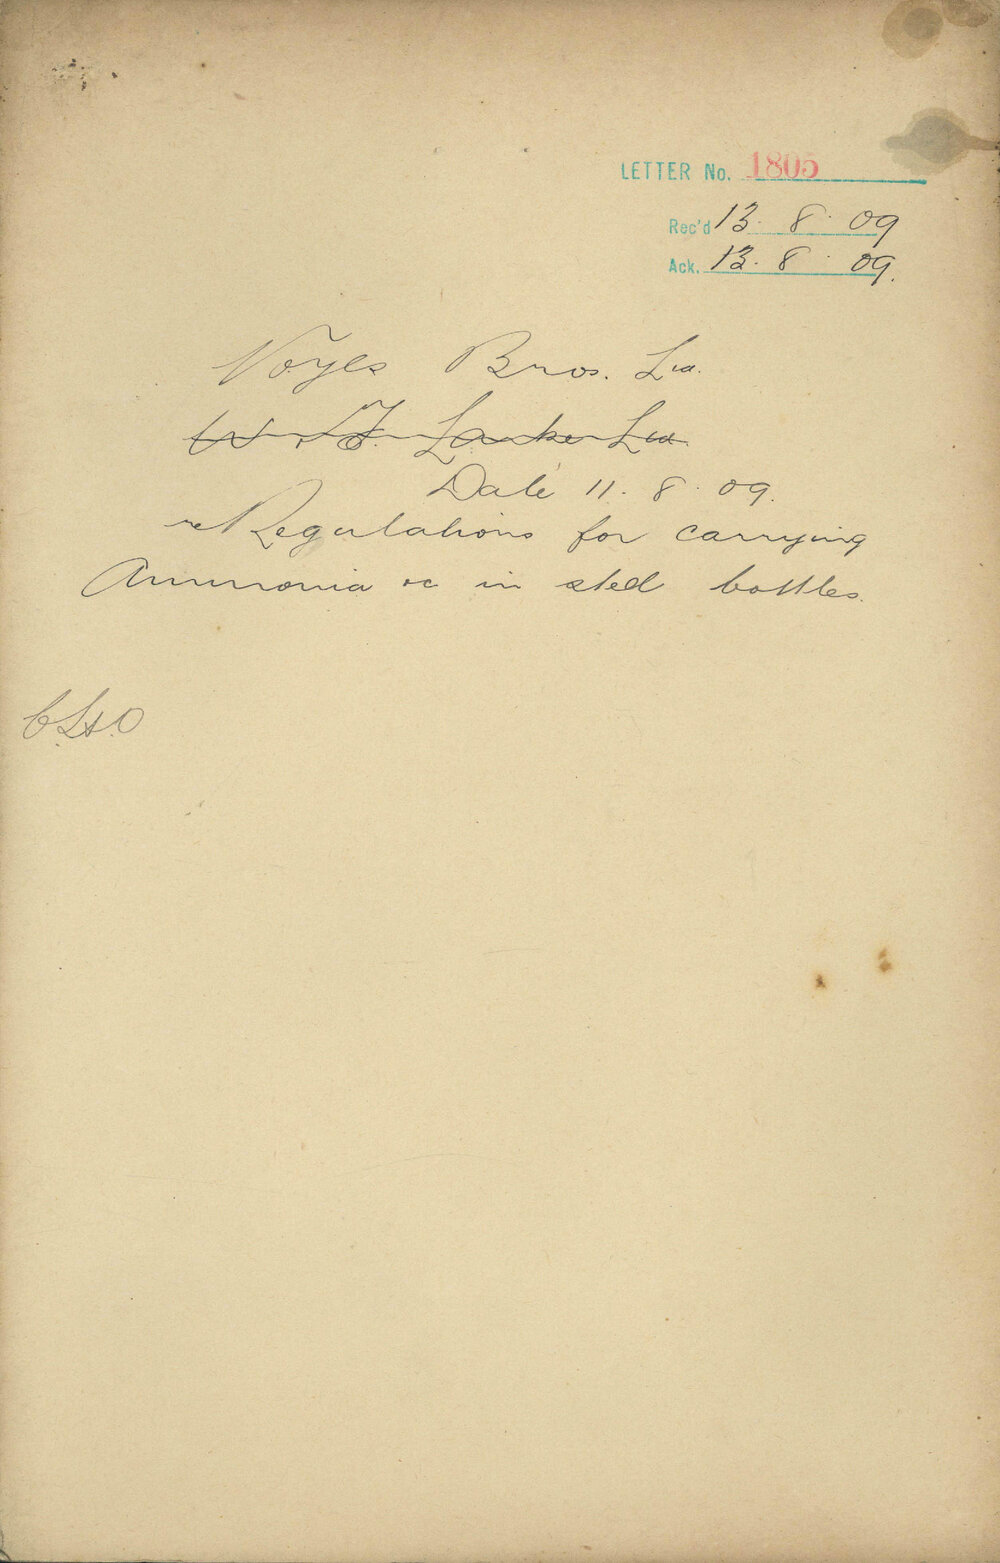 LETTER No. 1805
Rec'd 13. 8. 09
Ack. 13. 8. 09.
Noyes Bros. Ltd.
W. F. Ltd
Date 11. 8. 09.
re Regulations for carrying
Ammonia &c in steel bottles.